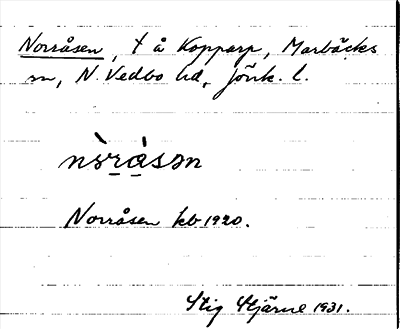 Norråsen, t å Kopparp, Marbäcks
sn, N. Vedbo hd, Jönk. l.
nòråsən
Norråsen kb 1920.
Stig Stjärne 1931.